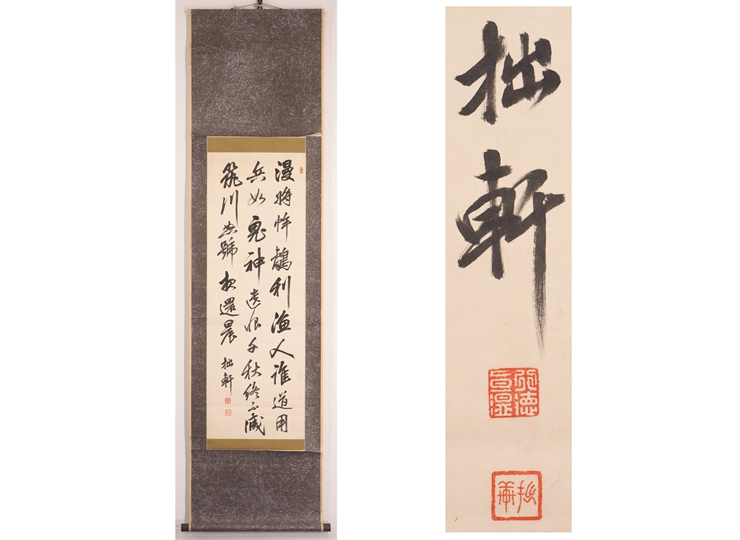 漫將蚌鷸利漁人誰道用
兵如鬼神遺恨千秋終不滅
筑川怒號夜還晨 拙軒
拙軒